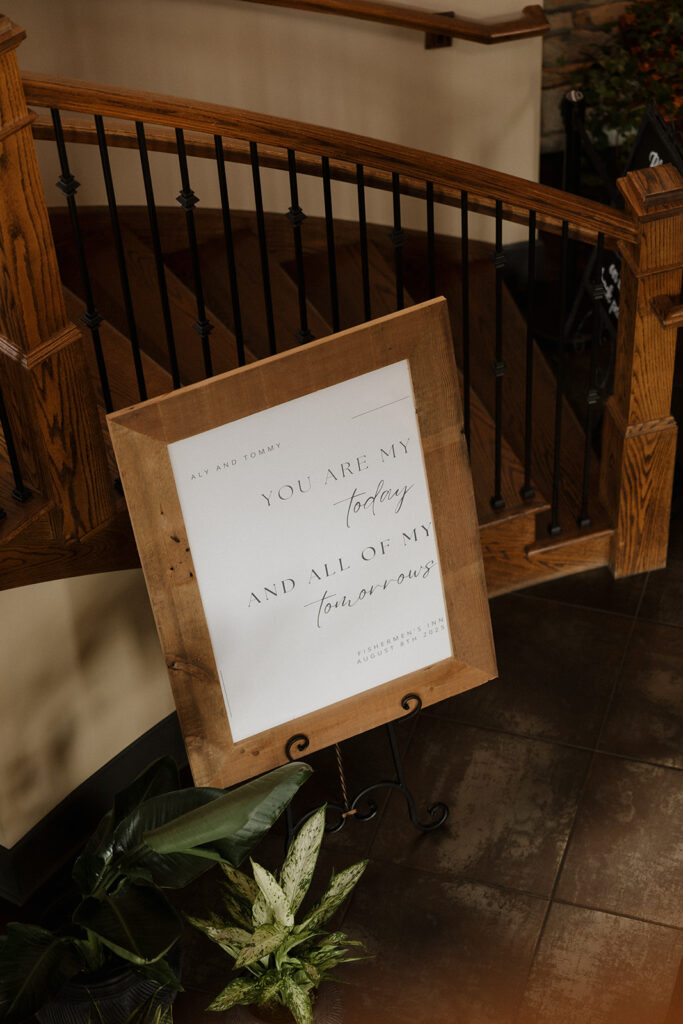 ALY AND TOMMY
YOU ARE MY
today
AND ALL OF MY
tomorrows
FISHERMEN'S INN
AUGUST 8TH 2025